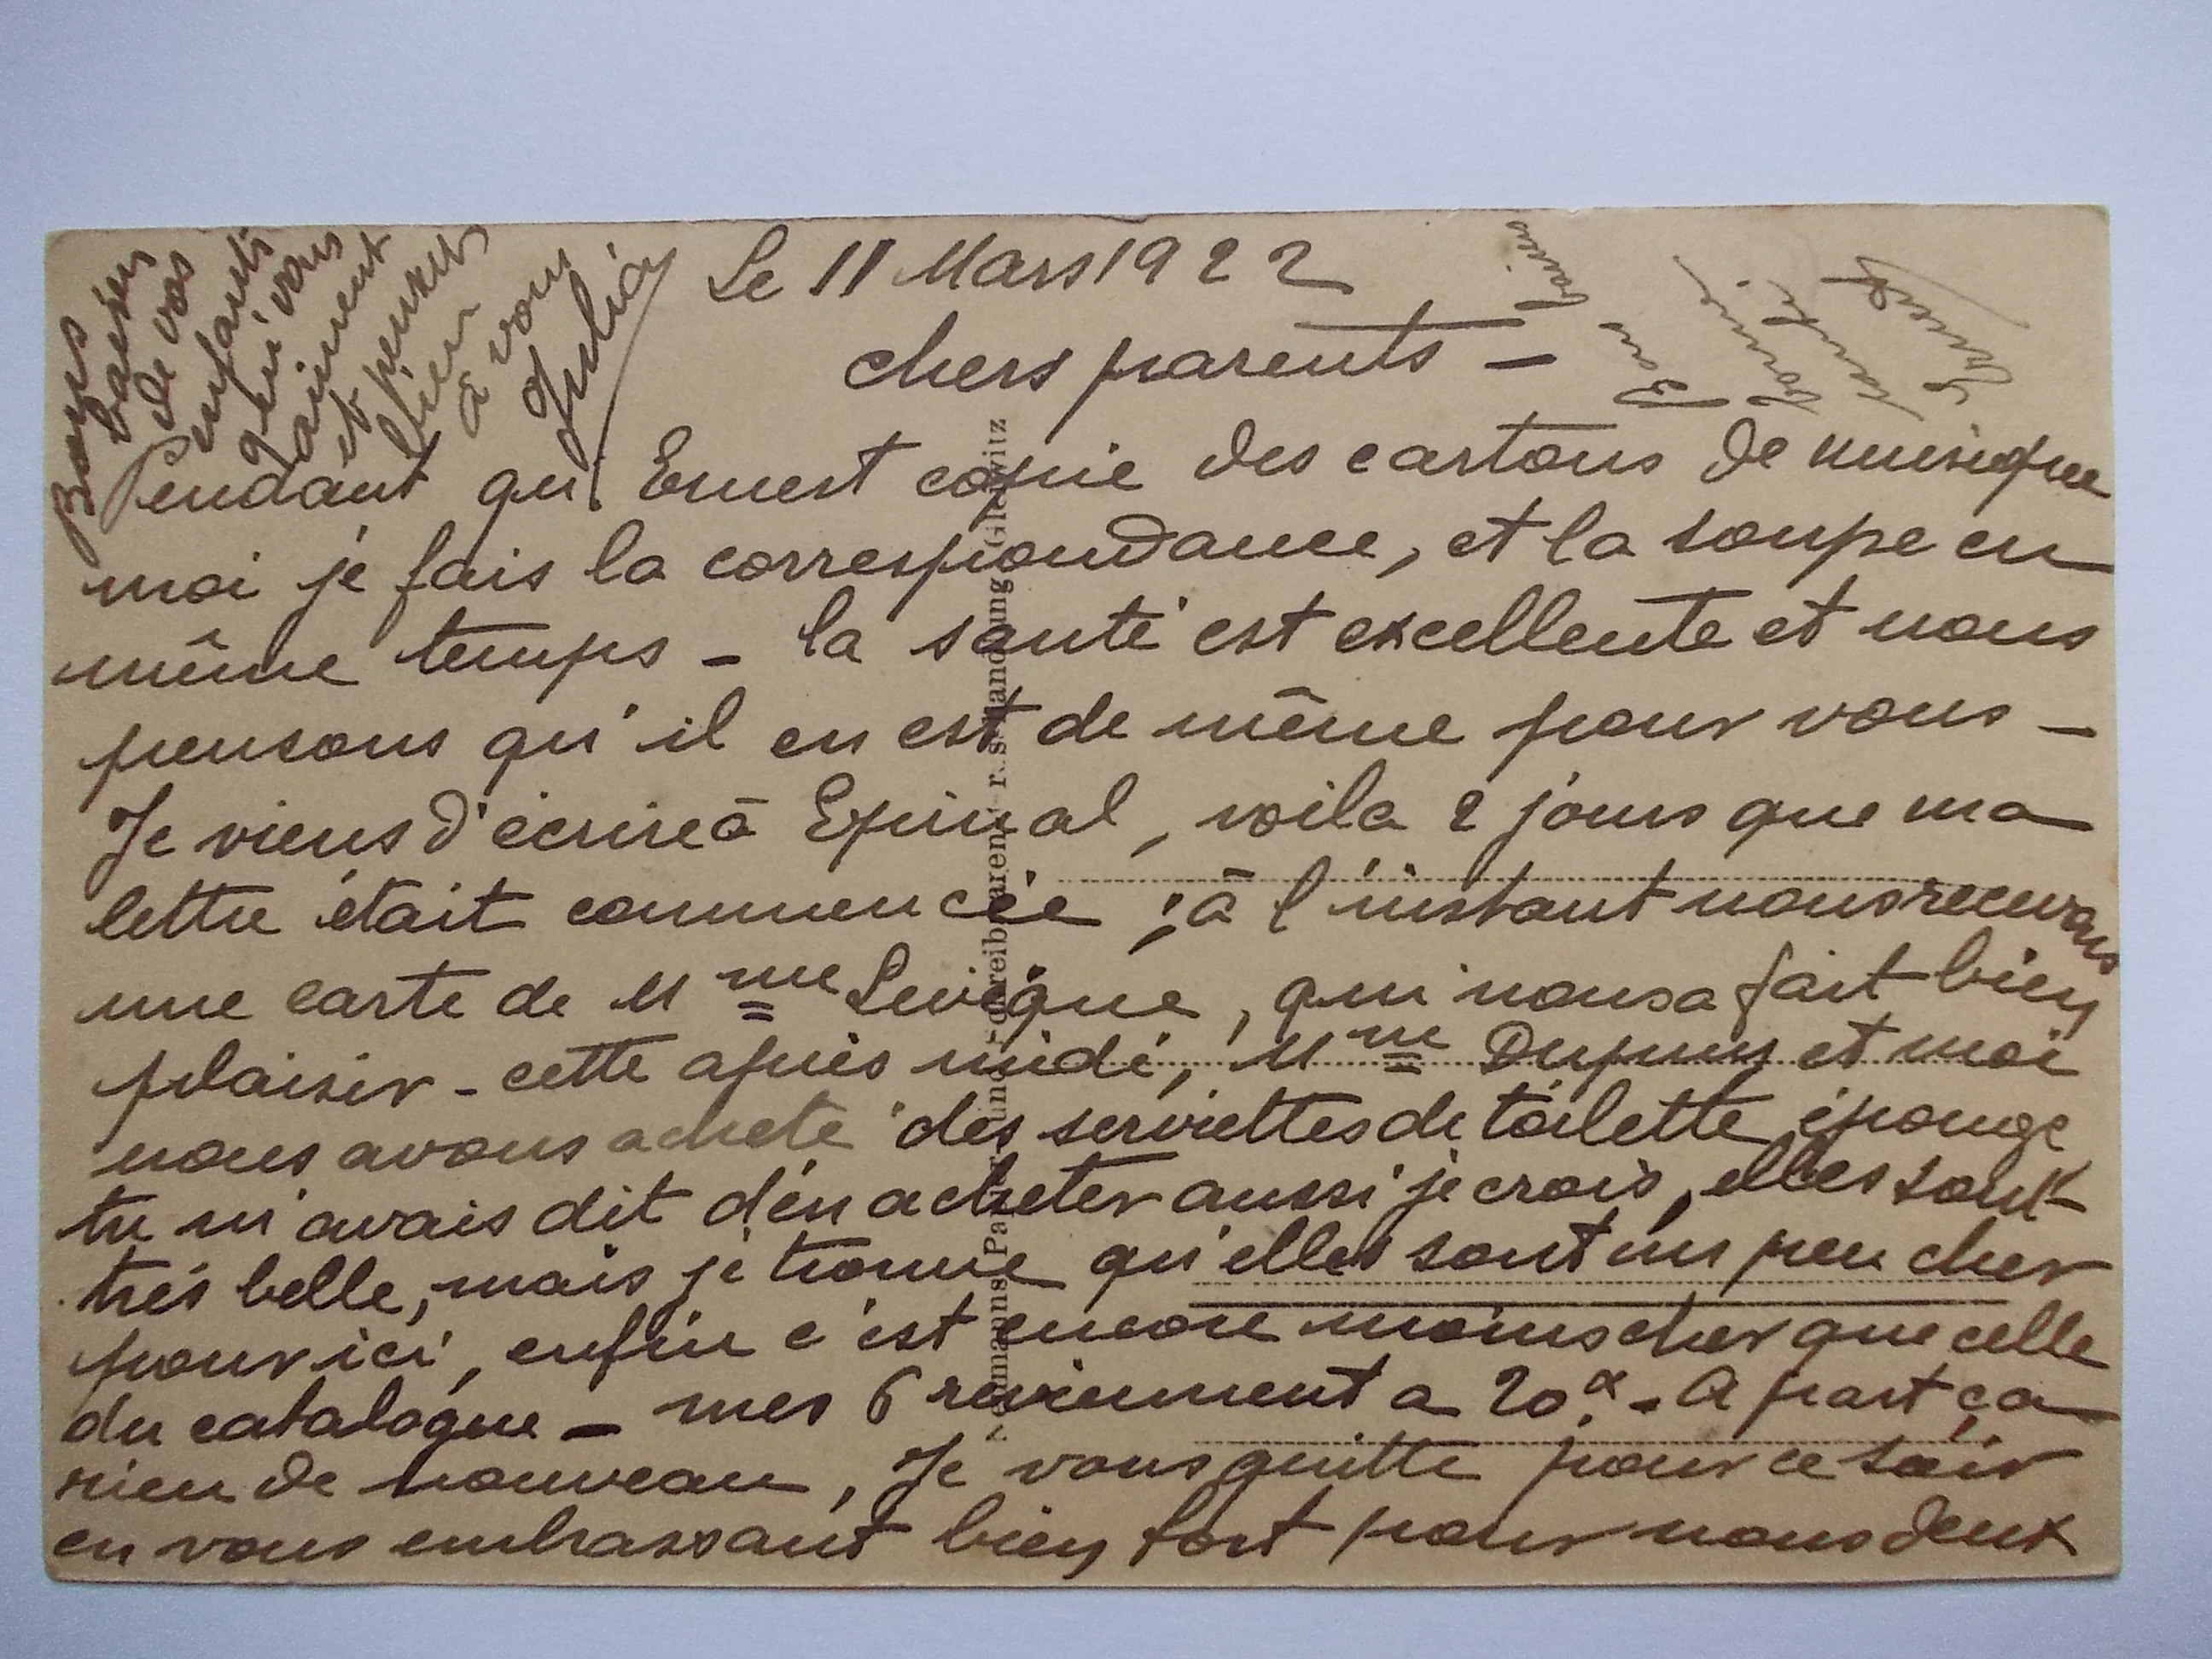 Le 11 Mars 1922
chers parents –
Pendant qu' Ernest copie des cartons de musique
moi je fais la correspondance, et la soupe en
même temps – la santé est excellente et nous
pensons qu'il en est de même pour vous –
Je viens d'écrire à Epinal, voila 2 jours que ma
lettre était commencée ; à l'instant nous recevons
une carte de Mme Levêque, qui nous a fait bien
plaisir – cette après midi, Mme Dupuy et moi
nous avons acheté des serviettes de toilette éponge
tu m'avais dit d'en acheter aussi je crois, elles sont
très belle, mais je trouve qu'elles sont un peu cher
pour ici, enfin c'est encore moins cher que celle
du catalogue – mes 6 reviennent a 20 . – A part ça
rien de nouveau, Je vous quitte pour ce soir
en vous embrassant bien fort pour nous deux
Bons
baisers
de vos
enfants
qui vous
aiment
et pensent
bien
à vous
Julia
Bons
baisers
Ernest